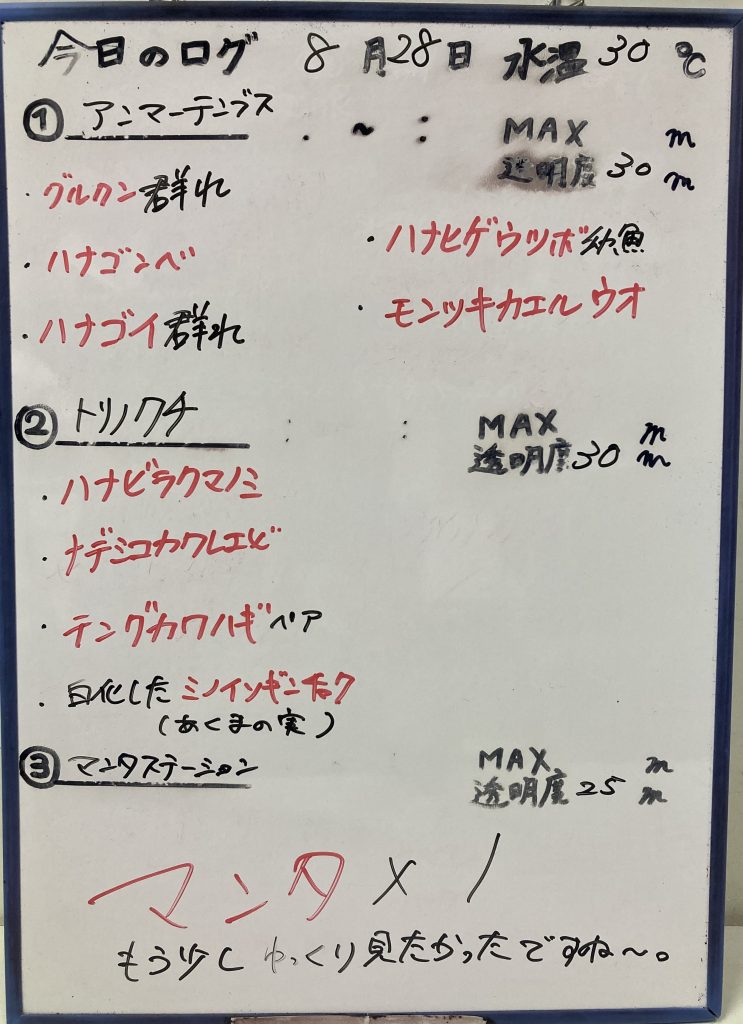 今日のログ 8月28日 水温30℃
① アンマーテンブス . ~ : MAX m
透明度30m
・グルクン群れ
・ハナゴンベ
・ハナゴイ群れ
・ハナヒゲウツボ幼魚
・モンツキカエルウオ
② トリノクチ : : MAX m
透明度30m
・ハナビラクマノミ
・ナデシコカクレエビ
・テングカワハギペア
・白化したミノイソギンチャク
(あくまの実)
③ マンタステーション MAX m
透明度25m
マンタ×1
もう少しゆっくり見たかったですね〜。